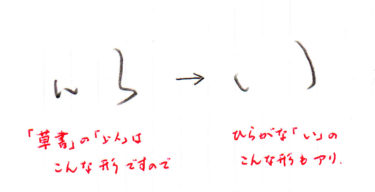 以 → い
「草書」の「以」は
こんな形ですので
ひらがな「い」の
こんな形もアリ.